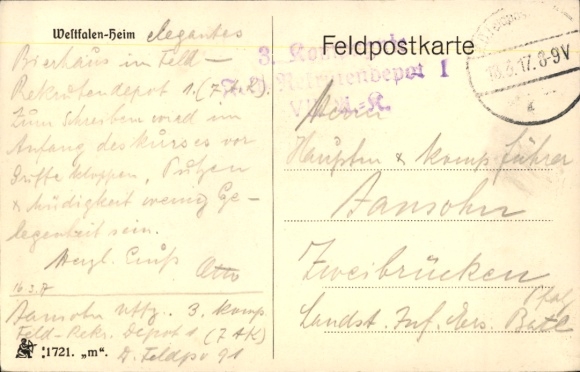 Westfalen-Heim elegantes
Bierhaus in Feld-
Rekrutendepot 1. (7. A.K)
Zum Schreiben wird im
Anfang des Kurses vor
Griffe kloppen, Putzen
& Müdigkeit wenig Ge-
legenheit sein.
Herzl. Gruß
Otto
16 3. 17
Aansohn Uffz. 3. Komp.
Feld-Rekr. Depot 1 (7 AK)
D. Feldpo 91
:1721. „m“.
Feldpostkarte
3. Kompagnie
Rekrutendepot 1
VII. A.-K.
18.3.17. 8-9V
Herrn
Hauptm & Komp. führer
Aansohn
Zweibrücken
Pfalz
Landst. Inf. Ers. Batl